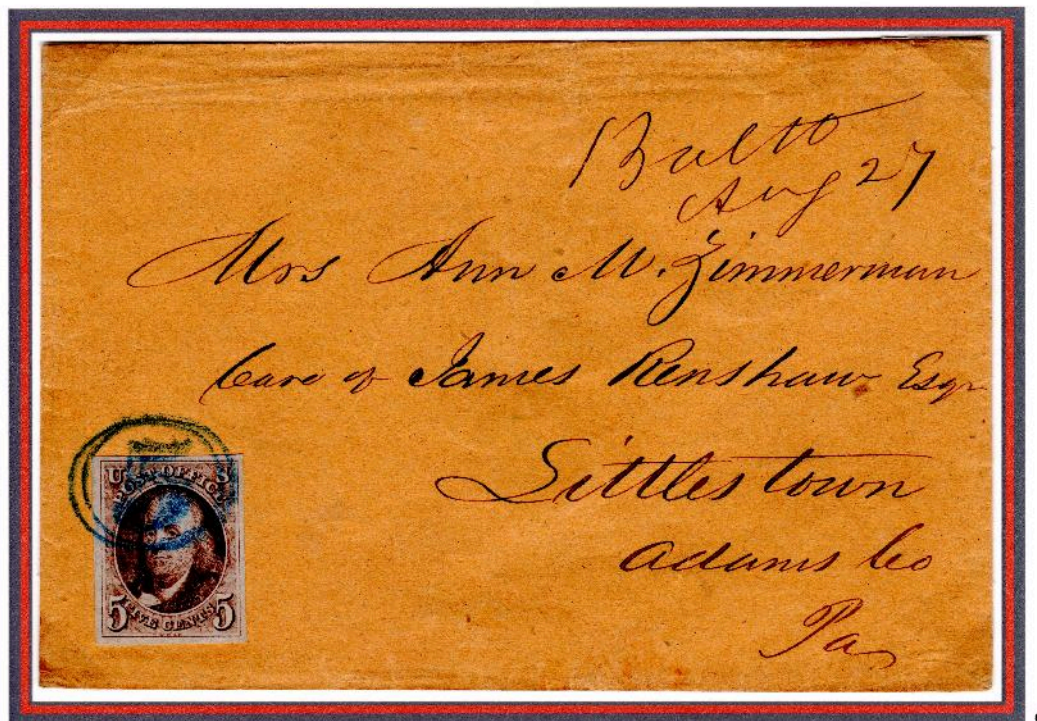 Balto
Aug 27
Mrs Ann M. Zimmerman
Care of James Renshaw Esqr
Littlestown
Adams Co
Pa
5
U S
POST OFFICE
FIVE CENTS
5 5